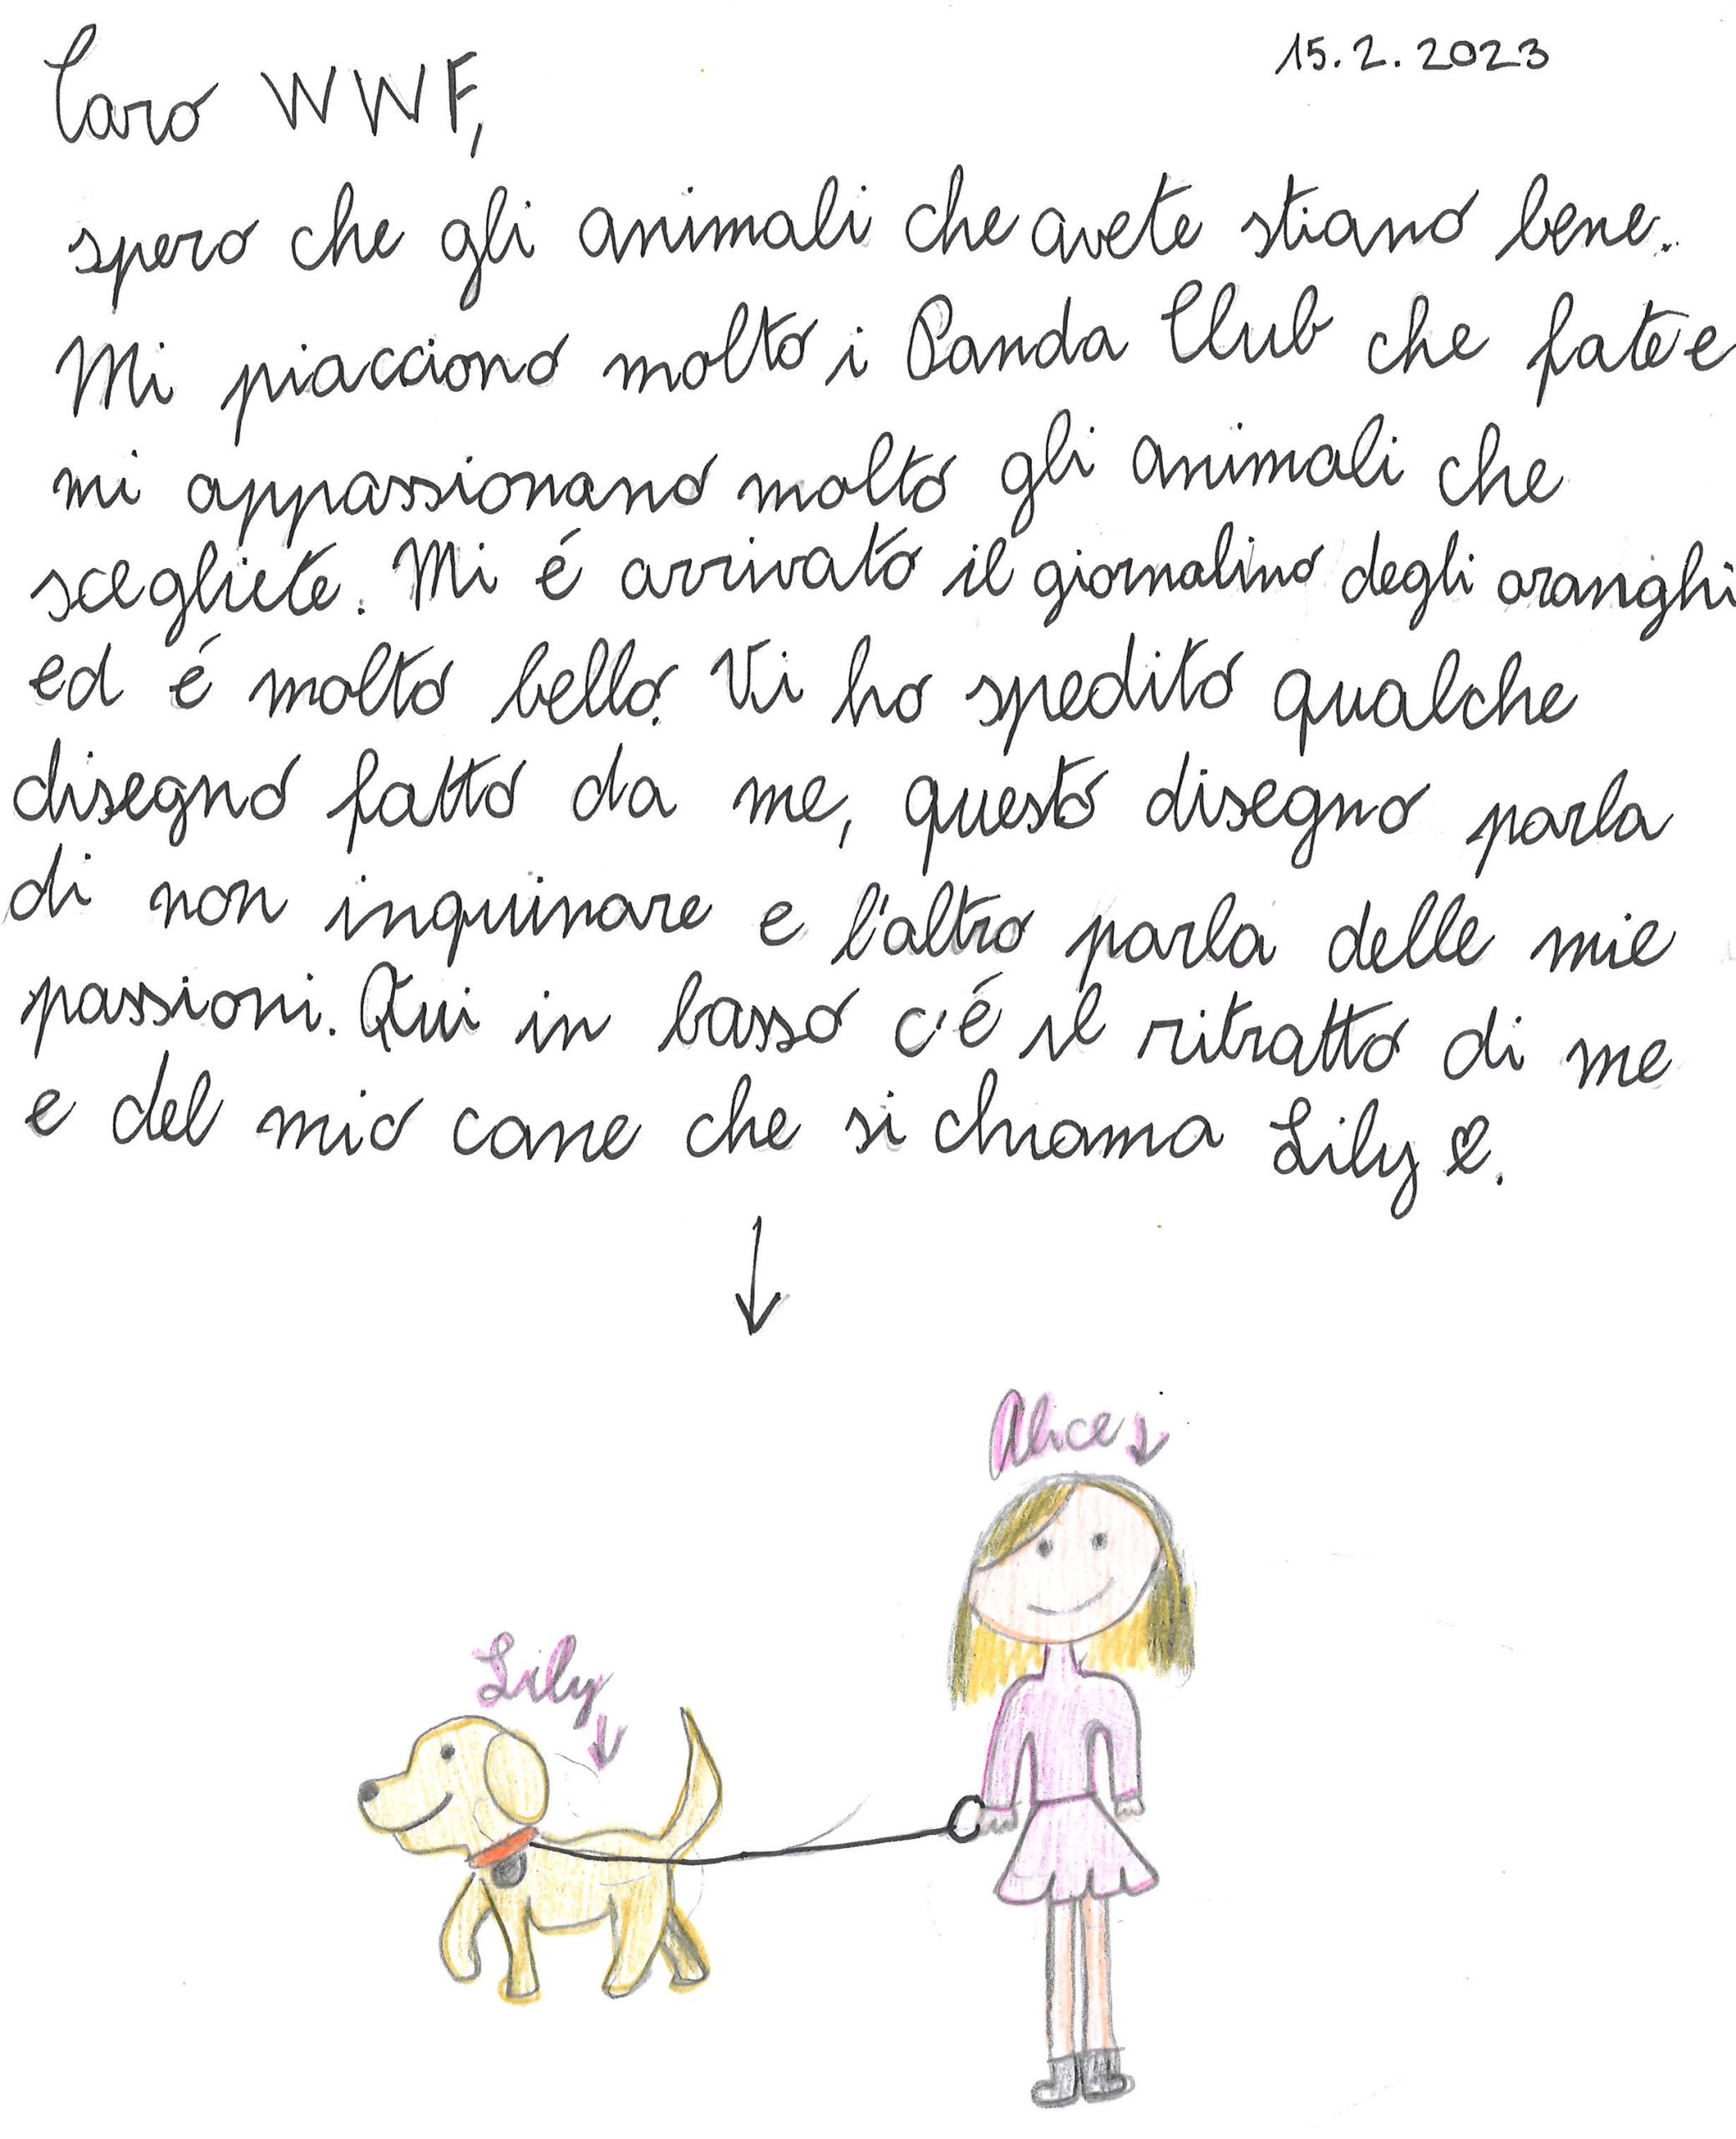 15.2.2023
Caro WWF,
spero che gli animali che avete stiano bene.
Mi piacciono molto i Panda Club che fate e
mi appassionano molto gli animali che
scegliete. Mi é arrivato il giornalino degli oranghi
ed é molto bello. Vi ho spedito qualche
disegno fatto da me, questo disegno parla
di non inquinare e l'altro parla delle mie
passioni. Qui in basso c'é il ritratto di me
e del mio cane che si chiama Lily ♡.
Alice
Lily